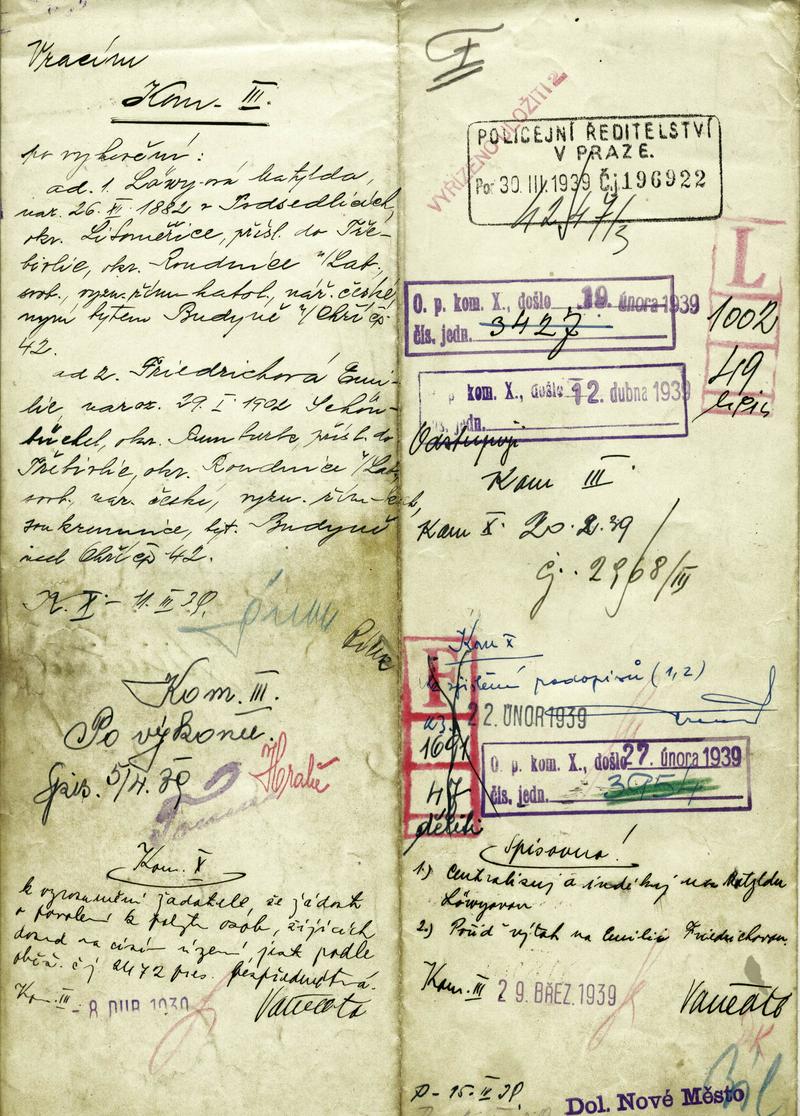 Vracím
Kom. III.
po vyšetření:
ad. 1. Löwyová Matylda,
nar. 26. II. 1882 v Podsedlicích,
okr. Litoměřice, přísl. do Tře-
birlic, okr. Roudnice n/Lab.,
svob., vyzn. řím. katol., nár. české,
nyní bytem Budyně n/Ohří čp
42.
ad 2. Friedrichová Emi-
lie, naroz. 29. I 1902 Schön-
büchel, okr. Rumburk, přísl. do
Třebirlic, okr. Roudnice n/Lab.
svob. nár. české, vyzn. řím.
soukromnice, byt. Budyně
nad Ohří čp 42.
K. X - 11. III 39.
Kom. III.
Po výkonu.
5/4. 39
Kom. X
k vyrozumění žadatele, že žádost
o povolení k pobytu osob, žijících
dosud na cizím území jest podle
Kom. III - 8. DUB. 1939
I
VYŘÍZENO ULOŽITI 2
POLICEJNÍ ŘEDITELSTVÍ
V PRAZE.
30. III. 1939 Čj 196922
L
1002
49
O. p. kom. X., došlo 19. února 1939
čís. jedn. 3427
p. kom. X., došlo 12. dubna 1939
čís. jedn.
Odstupuji
Kom III.
Kom X. 20.2.39
čj. 2968/III
Kom X
F
podpisů (1,2)
22. ÚNOR 1939
1691
47
O. p. kom. X., došlo 27. února 1939
čís. jedn. 3954
Spisovna!
1.) Centralisuj a indikuj na Matyldu
Löwyovou
2.) Pořiď výtah na Emilii Friedrichovou.
Kom. III 29. BŘEZ. 1939
Dol. Nové Město